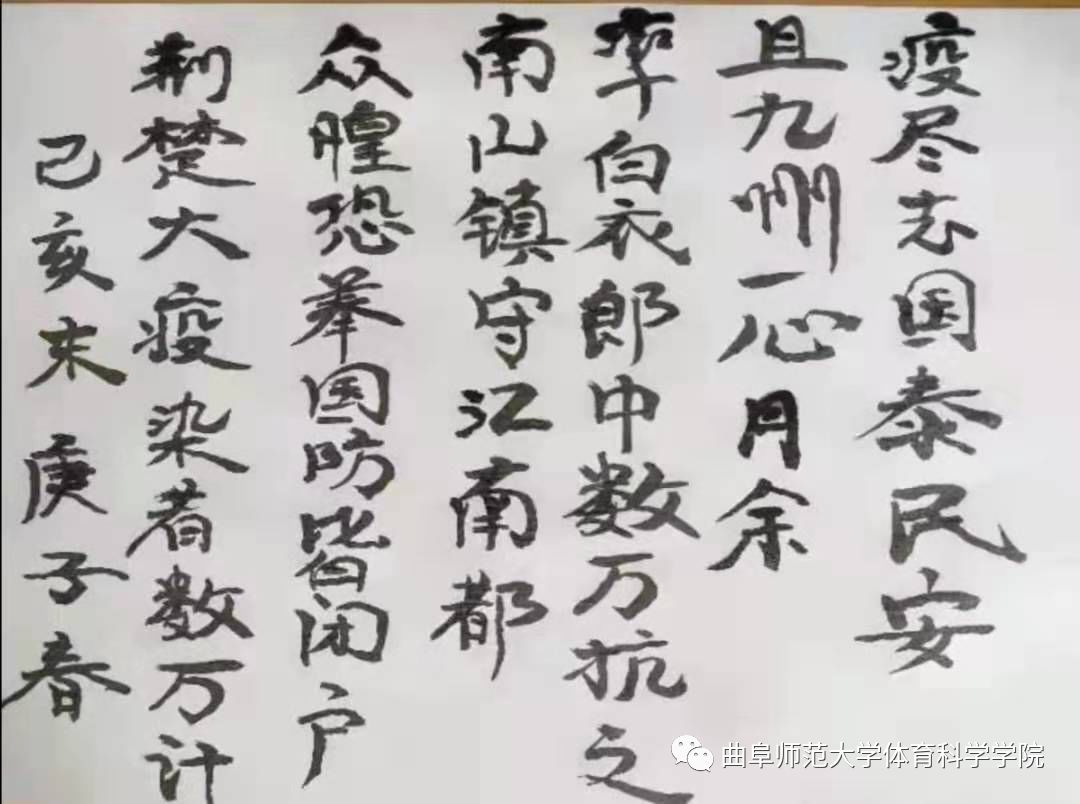 己亥末庚子春
荆楚大疫染者数万计
众惶恐举国防皆闭户
南山镇守江南都
率白衣郎中数万抗之
且九州一心月余
疫尽去国泰民安
曲阜师范大学体育科学学院